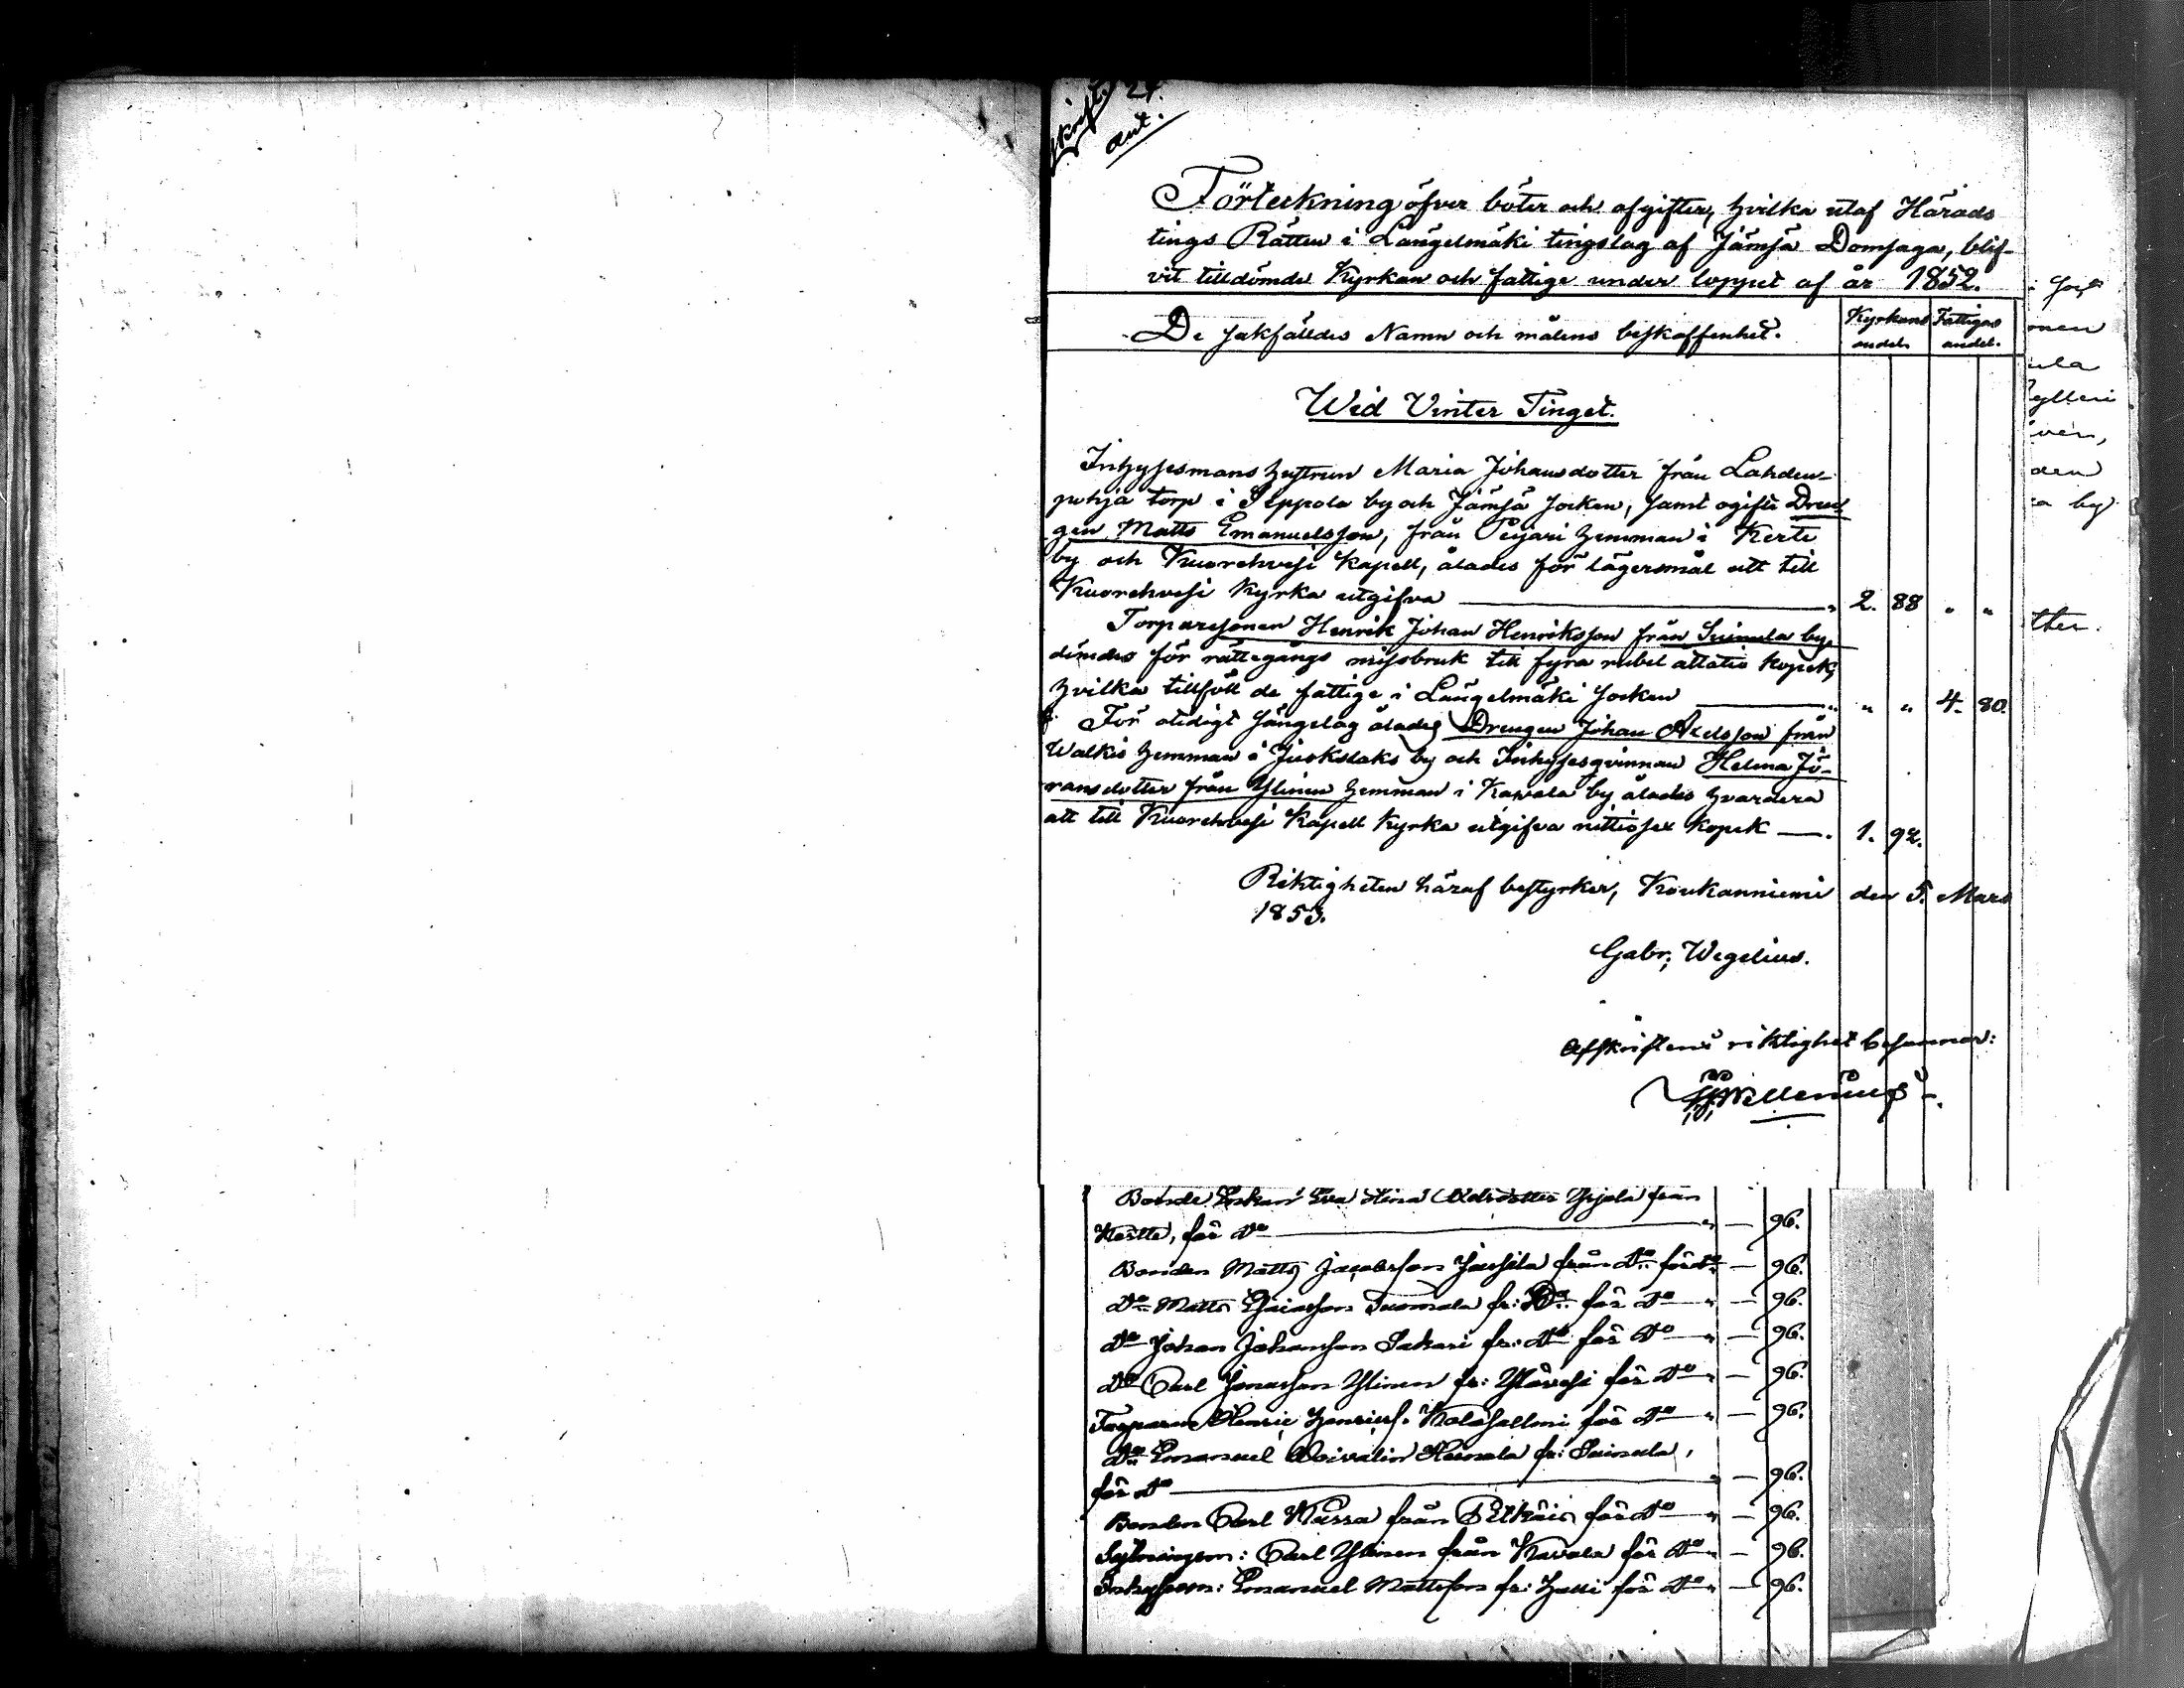 24.
ant.
Förteckning öfver böter och afgifter, hvilka utaf Härads
tings Rätten i Längelmäki tingslag af Jämsä Domsaga, blif-
vit tilldömde Kyrkan och fattige under loppet af år 1852.
De sakfälldes Namn och målens beskaffenhet. Kyrkans andel. Fattigas andel.
Wid Vinter Tinget.
Inhysesmans hustrun Maria Johansdotter från Lahden-
pohja torp i Seppola by och Jämsä socken, samt ogifte Dren-
gen Matts Emanuelsson, från hemman i Kerte
by och Kuorehvesi Kapell, ålades för lägersmål att till
Kuorehvesi Kyrka utgifva 2. 88 " "
Torparesonen Henrik Johan Henriksson från Suinula by,
dömdes för rättegångs missbruk till fyra rubel åttatio kopek,
hvilka tillföll de fattige i Längelmäki socken " " 4. 80.
För otidigt sängelag ålades Drengen Johan Axelsson från
Walkis hemman i Juokslaks by och Inhysesqvinnan Helena Jö-
ransdotter från Ylinen hemman i Kavala by ålades hvardera
att till Kuorehvesi Kapell Kyrka utgifva nittiosex kopek 1. 92.
Riktigheten häraf bestyrker, Koukanniemi den 5. Mars
1853.
Gabr: Wegelius.
Afskriftens riktighet besannar:
Bonde Enkan Eva Stina Yrjola från
Kertte, för Do " — 96.
Bonden Matts Jacobsson Jussila från Do för Do — 96.
Do Matts Tuomala fr: Do för Do " — 96.
Do Johan Johansson Sakari fr: Do för Do " — 96.
Do Carl Jonasson Ylinen fr: för Do " — 96.
Torparen Henric Henricss. Kolisalmi för Do " — 96.
Do Emanuel Heinola fr: Suinula,
för Do " — 96.
Bonden Carl från för Do " — 96.
Carl Ylinen från Kavala för Do " — 96.
Inhysesm: Emanuel Mattsson fr: Halli för Do " — 96.